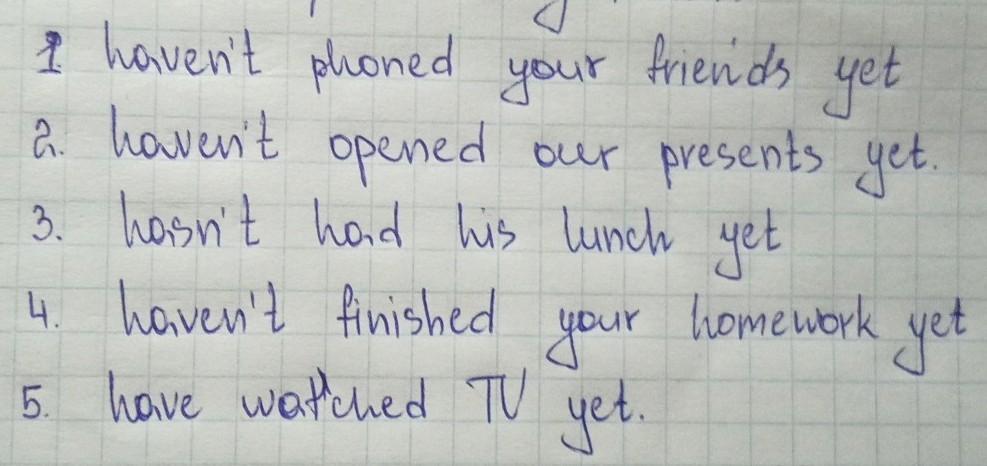 1. haven't phoned your friends yet
2. haven't opened our presents yet.
3. hasn't had his lunch yet
4. haven't finished your homework yet
5. have watched TV yet.